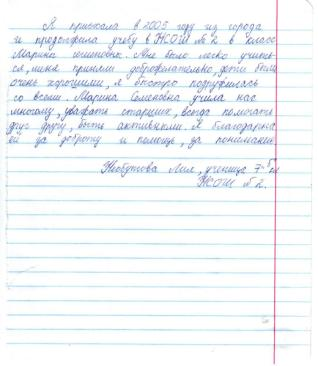 Я приехала в 2005 году из города
и продолжила учебу в ЖСОШ № 2 в класс
Марины Семеновны. Мне было легко учить-
ся, меня приняли доброжелательно, дети были
очень хорошими, я быстро подружилась
со всеми. Марина Семеновна учила нас
многому, уважать старших, всегда помогать
друг другу, быть активными. Я благодарна
ей за доброту и помощь, за понимание
Лия, ученица 7 "б" кл
ЖСОШ № 2.